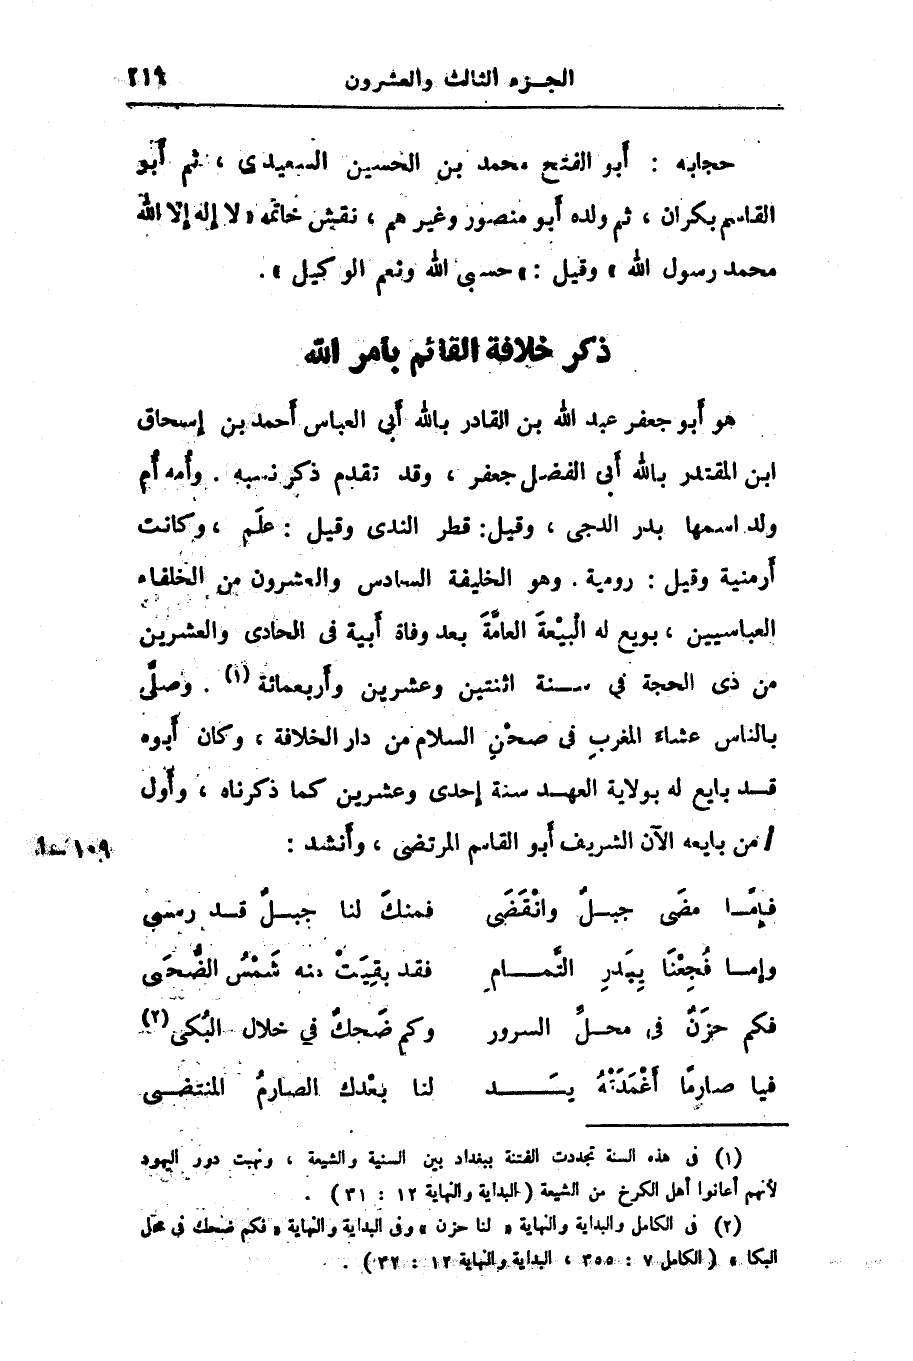 الجزء الثالث والعشرون ٢١٩
حجابه : أبو الفتح محمد بن الحسين السعيدى ، ثم أبو
القاسم بكران ، ثم ولده أبو منصور وغير هم ، نقش خاتمه « لا إله إلا الله
محمد رسول الله » وقيل : « حسبى الله ونعم الوكيل » .
ذكر خلافة القائم بأمر الله
هو أبو جعفر عبد الله بن القادر بالله أبى العباس أحمد بن إسحاق
ابن المقتدر بالله أبى الفضل جعفر ، وقد تقدم ذكر نسبه . وأُمه أم
ولد اسمها بدر الدجى ، وقيل: قطر الندى وقيل : علَم ، وكانت
أرمنية وقيل : رومية . وهو الخليفة السادس والعشرون من الخلفاء
العباسيين ، بويع له الْبيْعةَ العامَّةَ بعد وفاة أبية فى الحادى والعشرين
من ذى الحجة في سنة اثنتين وعشرين وأربعمائة (١) . وصلَّى
بالناس عشاء المغربِ فى صحْنِ السلام من دار الخلافة ، وكان أبوه
قد بايع له بولاية العهد سنة إحدى وعشرين كما ذكرناه ، وأول
/ من بايعه الآن الشريف أبو القاسم المرتضى ، وأنشد :
١٠٩
فإمَّا مضَى جبلٌ وانْقَضَى فمنكَ لنا جبلٌ قد رسى
وإما فُجِعْنَا بِبَدرِ التَّمامِ فقد بقِيَتْ منه شَمْسُ الضُّحَى
فكم حزَنٌ فى محلِّ السرور وكم ضَحكٌ في خلال البُكى (٢)
فيا صارمًا أغْمَدَتْهُ يَد لنا بعْدك الصارمُ المنتضى
(١) فى هذه السنة تجددت الفتنة ببغداد بين السنية والشيعة ، ونهبت دور اليهود
لأنهم أعانوا أهل الكرخ من الشيعة ( البداية والنهاية ١٢ : ٣١ ) .
(٢) فى الكامل والبداية والنهاية « لنا حزن » وفى البداية والنهاية « فكم ضحك فى محل
البكا » ( الكامل ٧ : ٣٥٥ ، البداية والنهاية ١٢ : ٣٢ ) .